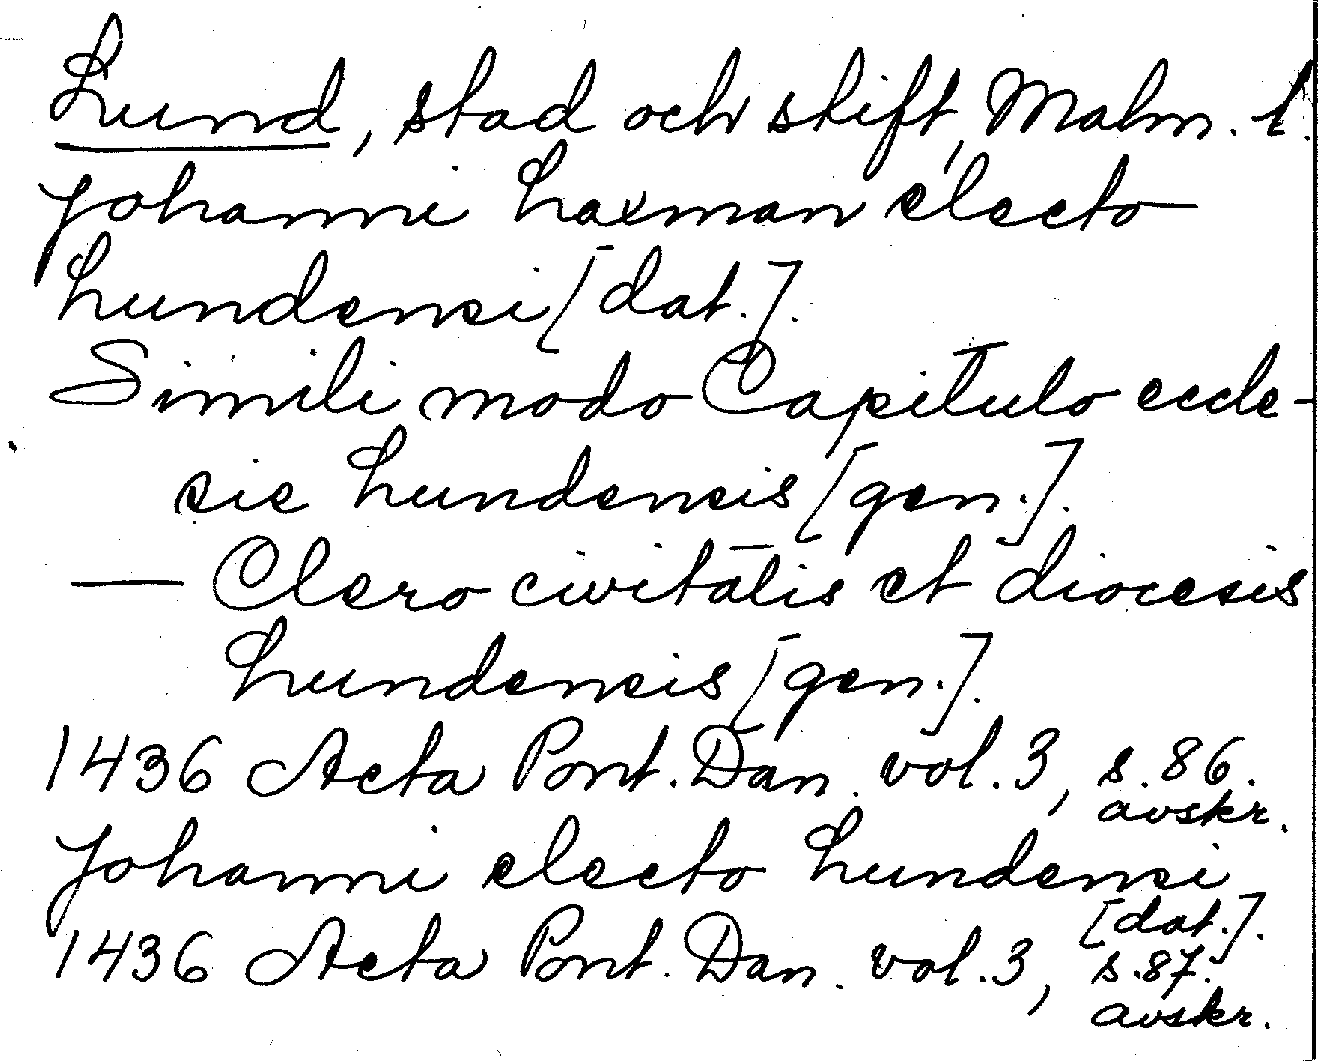 Lund, stad och stift, Malm. l.
Johanni Laxman electo
Lundensi [dat.].
Simili modo Capitulo eccle-
sie Lundensis [gen.].
— Clero civitatis et diocesis
Lundensis [gen.].
1436 Acta Pont. Dan. vol. 3, s. 86.
avskr.
Johanni electo Lundensi
[dat.].
1436 Acta Pont. Dan. vol. 3, s. 87.
avskr.